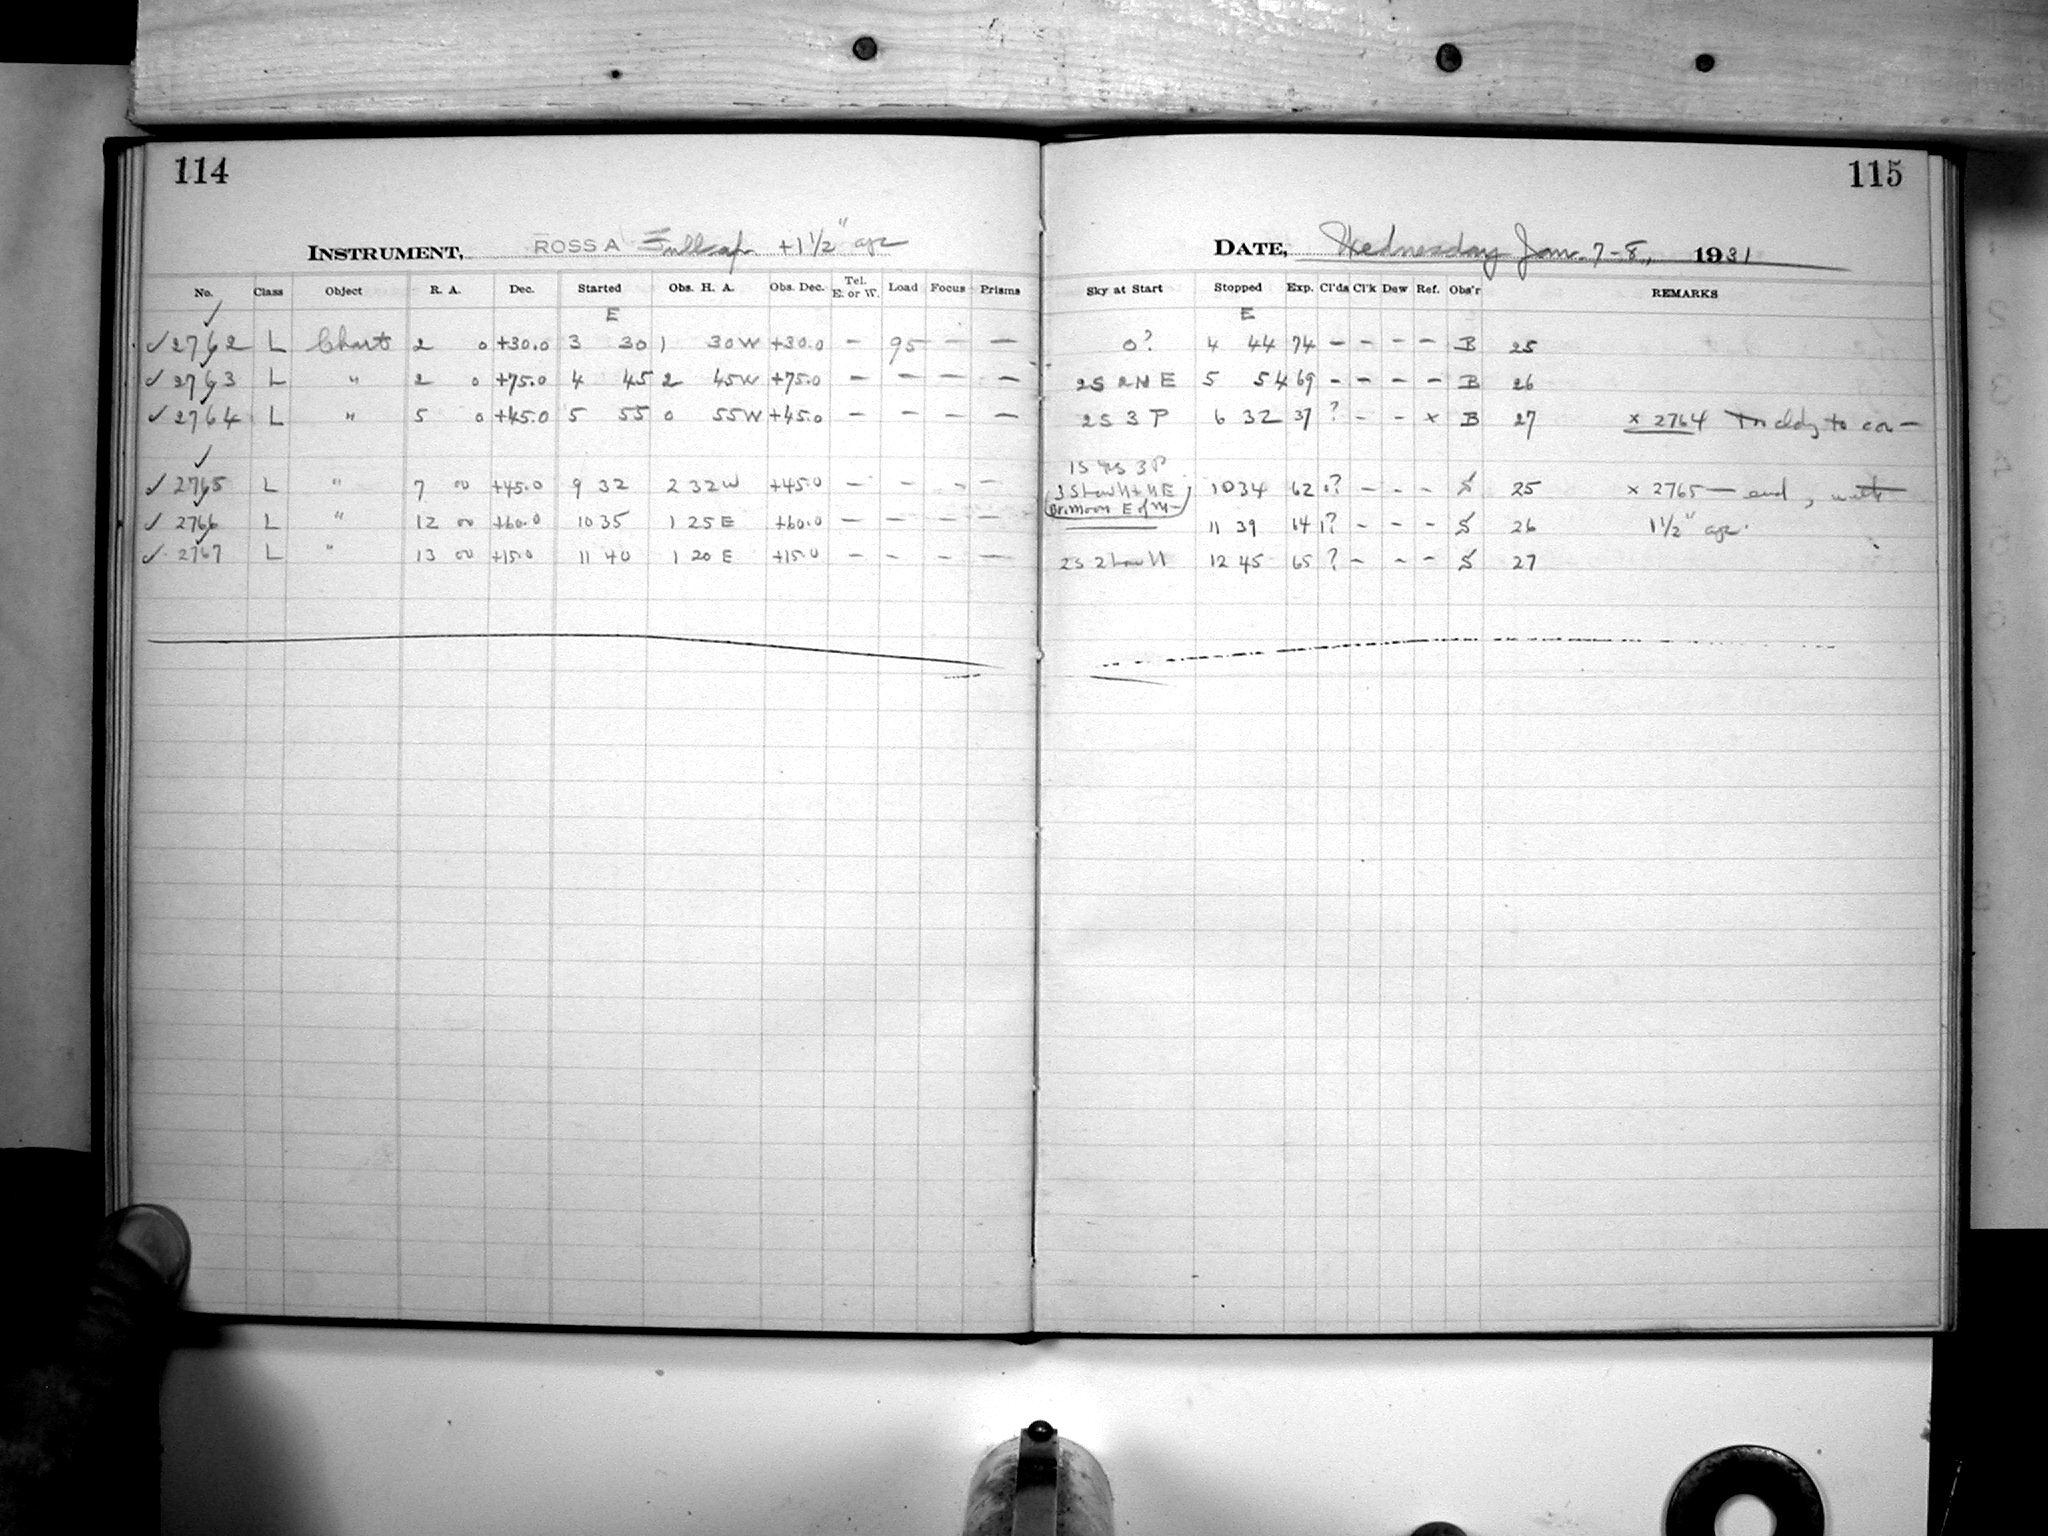 114
INSTRUMENT, ROSS A Full ap. +1 1/2" apr
No. Class Object R. A. Dec. Started Obs. H. A. Obs. Dec. Tel. E. or W. Load Focus Prisms
E
✓ 2762 L Charts 2 0 +30.0 3 30 1 30W +30.0 - 95 - -
✓ 2763 L " 2 0 +75.0 4 45 2 45W +75.0 - - - -
✓ 2764 L " 5 0 +45.0 5 55 0 55W +45.0 - - - -
✓ 2765 L " 7 00 +45.0 9 32 2 32W +45.0 - - - -
✓ 2766 L " 12 00 +60.0 10 35 1 25 E +60.0 - - - -
✓ 2767 L " 13 00 +15.0 11 40 1 20 E +15.0 - - - -
115
DATE, Wednesday Jan. 7-8, 1931
Sky at Start Stopped Exp. Cl'ds Cl'k Dew Ref. Obs'r REMARKS
E
0? 4 44 74 - - - - B 25
2S 2N E 5 54 69 - - - - B 26
2S 3 P 6 32 37 ? - - x B 27 x 2764 to cor-
1S 3P
3S Low N + N E 10 34 62 ? - - - S 25 x 2765 - end,
Br. Moon E of M
11 39 64 1? - - - S 26 1 1/2" apr.
2S 2 Low N 12 45 65 ? - - - S 27